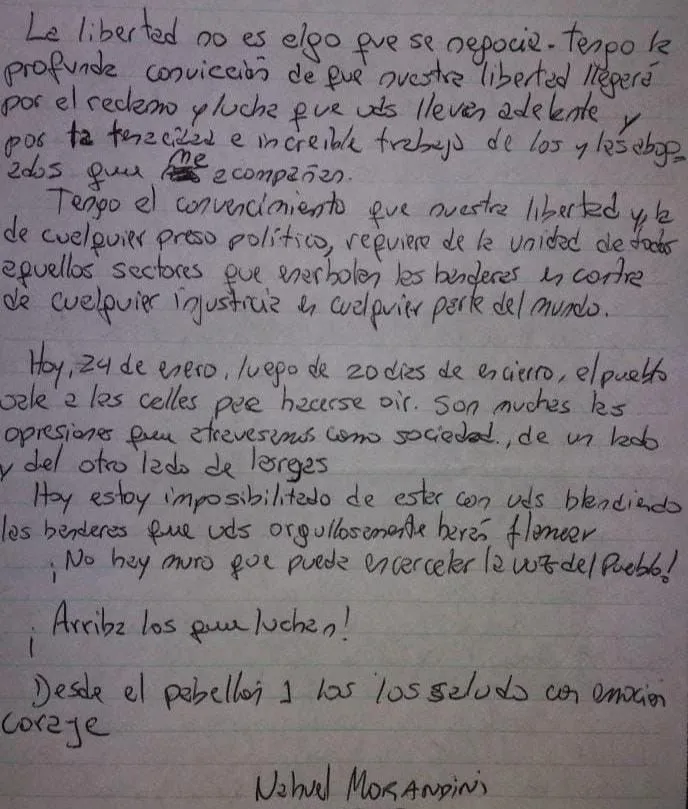 La libertad no es algo que se negocia. Tengo la
profunda convicción de que nuestra libertad llegará
por el reclamo y lucha que uds llevan adelante y
por la tenacidad e increíble trabajo de los y las aboga-
ados que me acompañan.
Tengo el convencimiento que nuestra libertad y la
de cualquier preso político, requiere de la unidad de todos
aquellos sectores que enarbolan las banderas en contra
de cualquier injusticia en cualquier parte del mundo.
Hoy, 24 de enero, luego de 20 dias de encierro, el pueblo
sale a las calles para hacerse oir. Son muchas las
opresiones que atravesamos como sociedad, de un lado
y del otro lado de
Hoy estoy imposibilitado de estar con uds blandiendo
las banderas que uds orgullosamente harán flamear
¡No hay muro que pueda encarcelar la voz del Pueblo!
¡Arriba los que luchan!
Desde el pabellon 1 los saludo con emoción
coraje
Nahuel MORANDINI